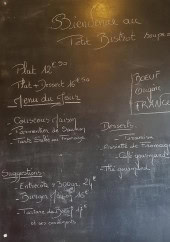 Bienvenue au
Petit Bistrot
Plat 12€50
Plat + Dessert 16€50
Menu du Jour
BOEUF
Origine
FRANCE
- Couscous Maison
- Parmentier de
- Tarte Salée au Fromage
Desserts
- Tiramisu
- Assiette de Fromage
- Café gourmand
- Thé gourmand
Suggestions
- Entrecôte
- Burger
- Tartare de Boeuf
et ses